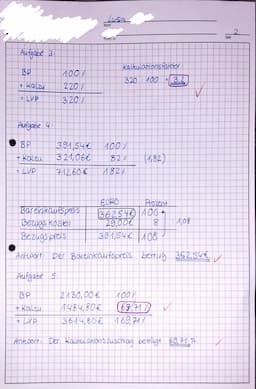 Luisa
2
Aufgabe 3:
BP 100% Kalkulationsfaktor
+ Kalzu 220% 320 : 100 = 3,2
= LVP 320%
Aufgabe 4:
BP 391,54€ 100%
+ Kalzu 321,06€ 82% (1,82)
= LVP 712,60€ 182%
EURO Prozent
Bareinkaufspreis 362,54€ 100
Bezugskosten 29,00€ 8 1,08
Bezugspreis 391,54€ 108
Antwort: Der Bareinkaufspreis beträgt 362,54€
Aufgabe 5:
BP 2130,00€ 100%
+ Kalzu 1484,80€ 69,71%
= LVP 3614,80€ 169,71%
Antwort: Der Kalkulationszuschlag beträgt 69,71%.